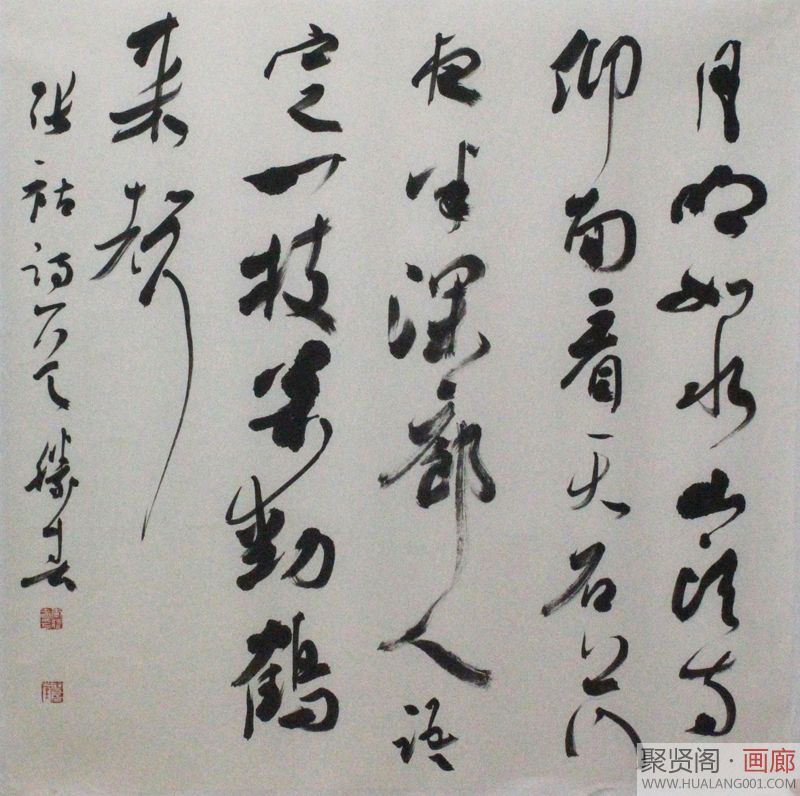 月明如水山頭寺
仰面看天石上行
夜半深廊人語
定一枝松動鶴
来聲
张祜詩 勝春
聚贤阁·画廊
WWW.HUALANG001.COM